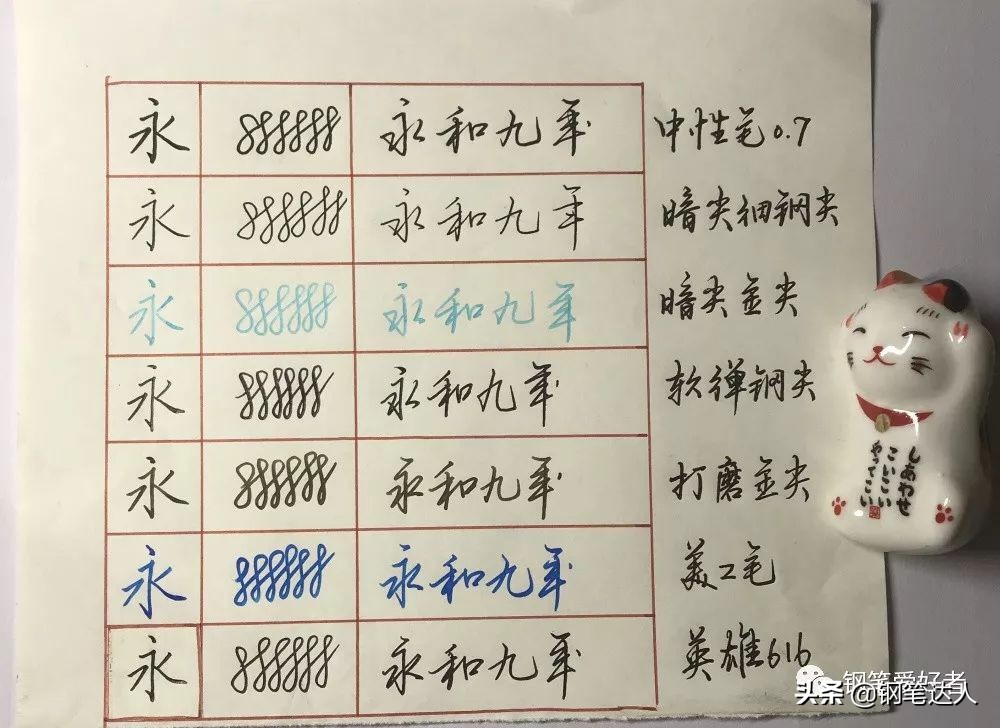 永 8888888 永和九年 中性笔0.7
永 8888888 永和九年 暗尖细钢尖
永 8888888 永和九年 暗尖金尖
永 8888888 永和九年 软弹钢尖
永 8888888 永和九年 打磨金尖
永 8888888 永和九年 美工笔
永 8888888 永和九年 英雄616
しあわせ
こいこい
やってこい
钢笔爱好者
头条@钢笔达人